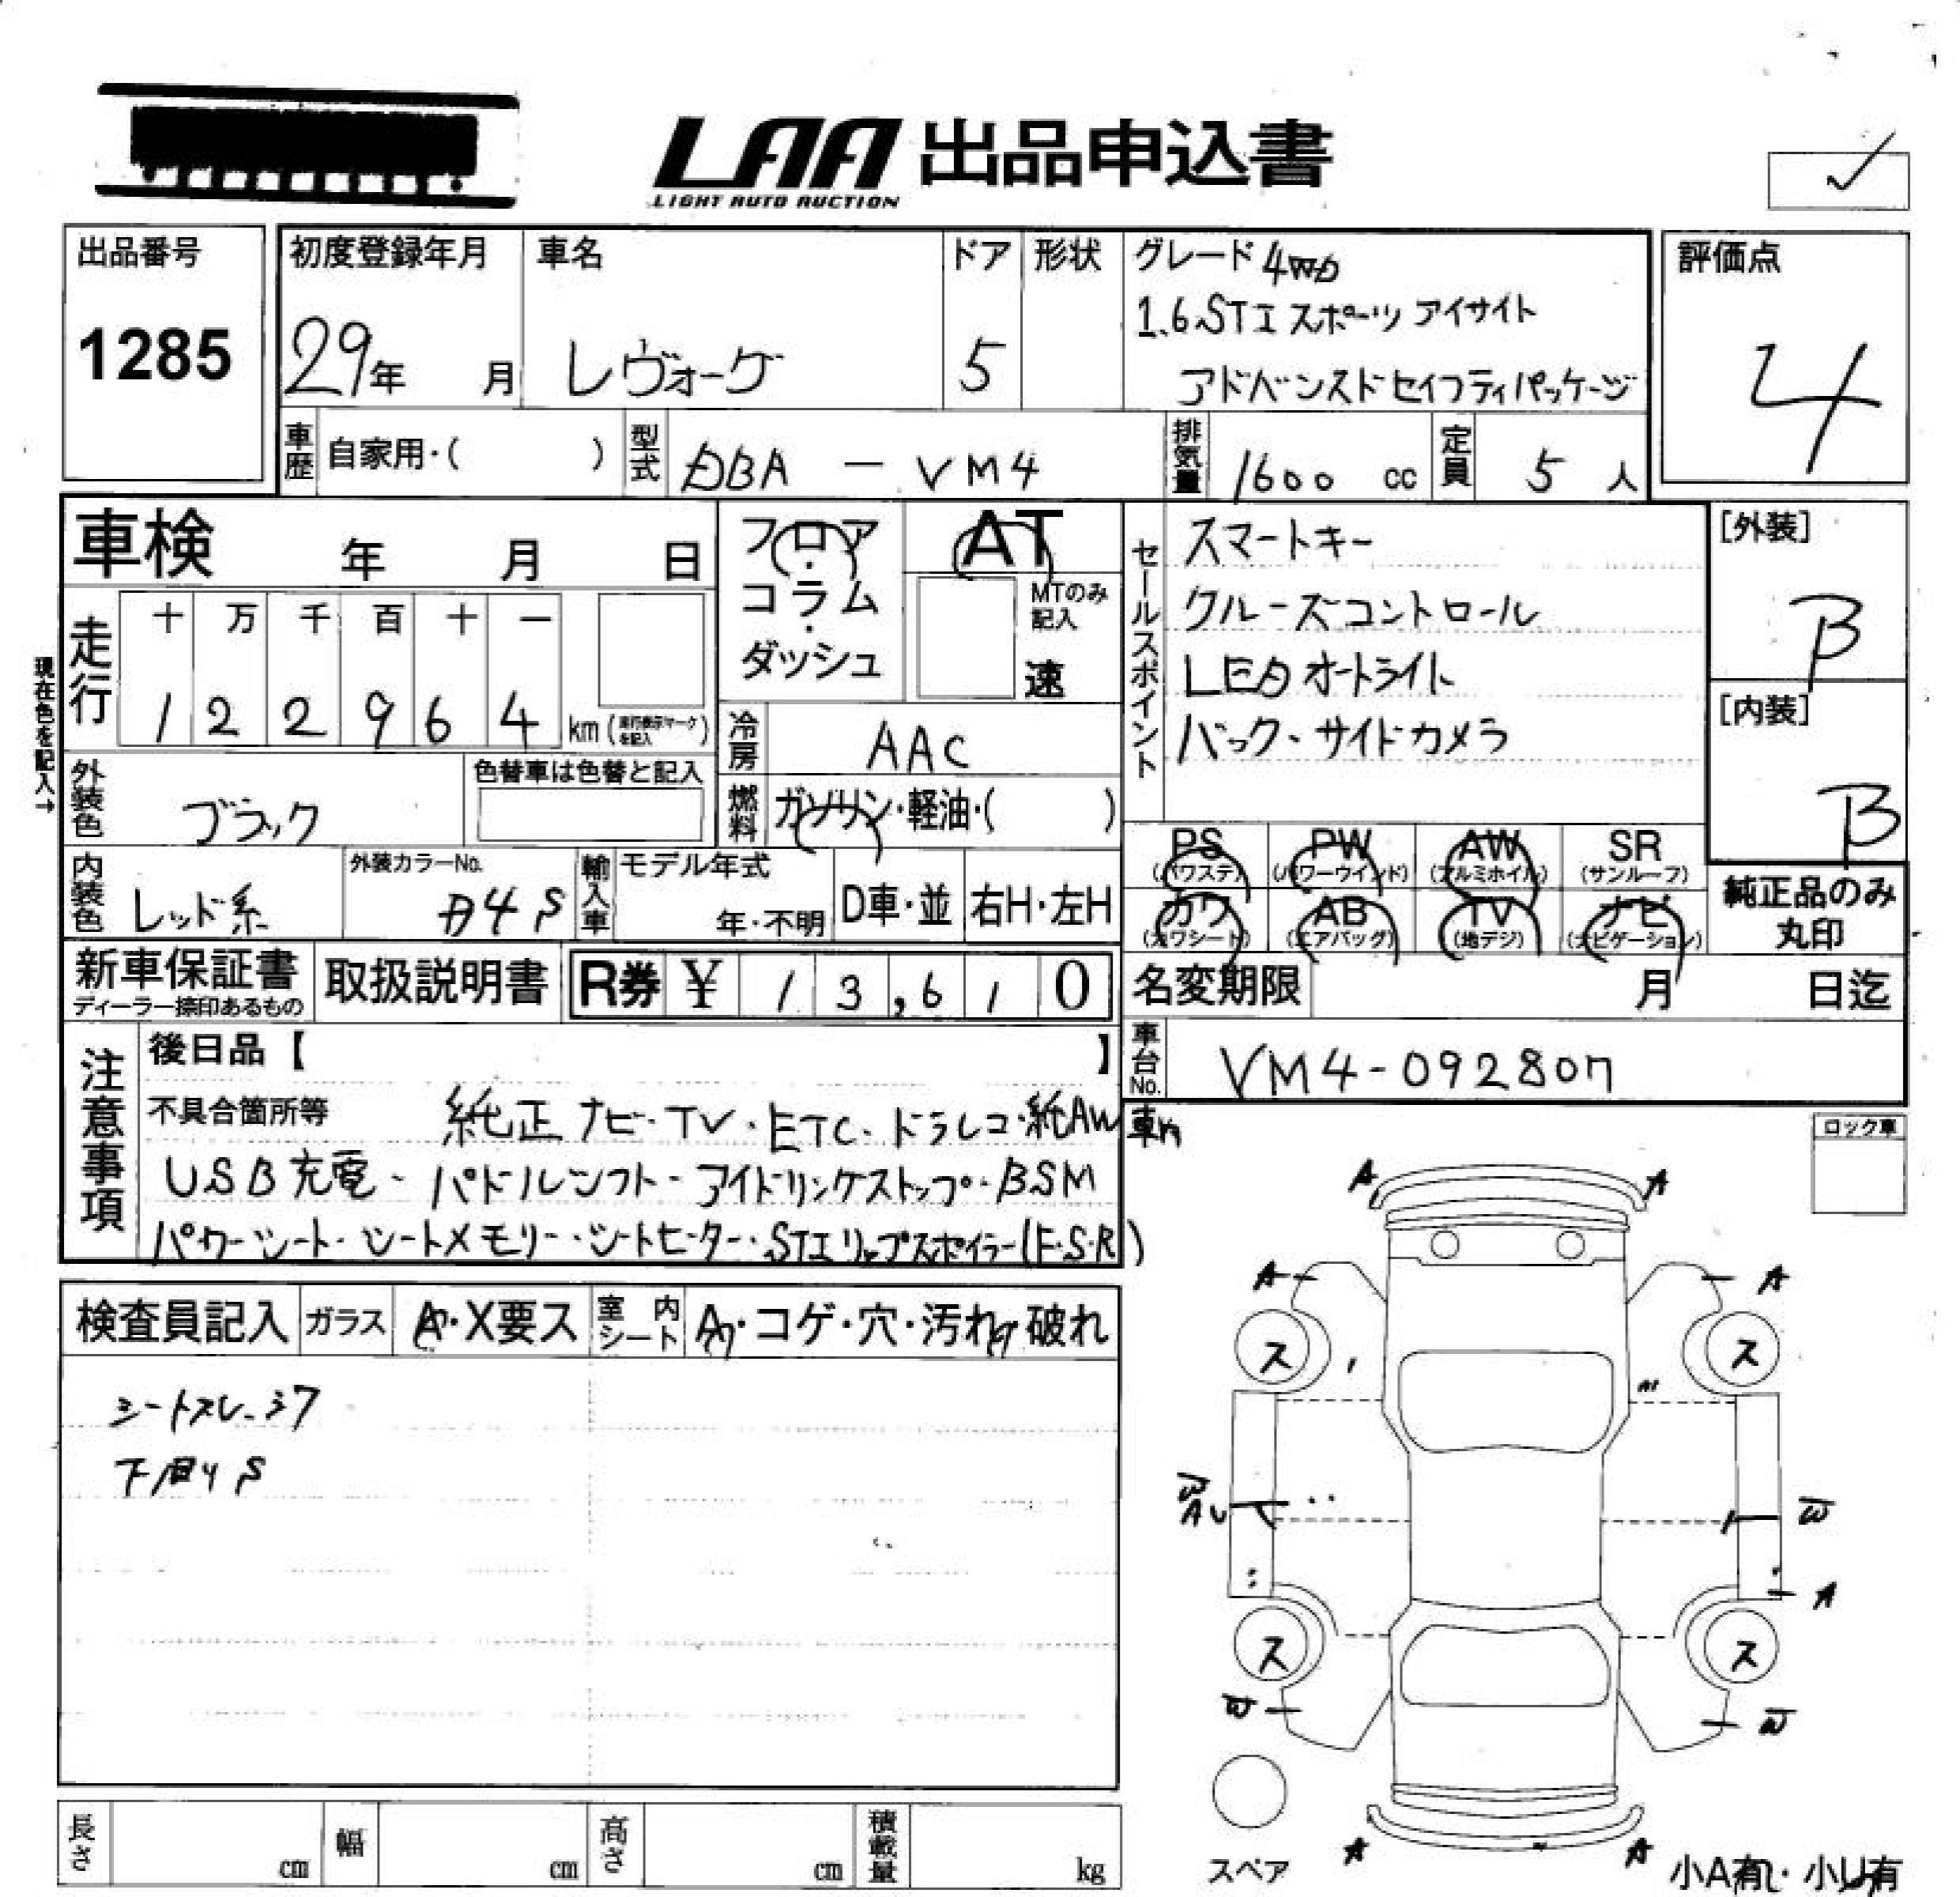 LAA 出品申込書
LIGHT AUTO AUCTION
出品番号
1285
初度登録年月
29年 月
車名
レヴォーグ
ドア
5
形状
グレード 4WD
1.6 STI スポーツ アイサイト
アドバンスドセイフティパッケージ
評価点
4
車歴 自家用・( )
型式 DBA - VM4
排気量 1600 cc
定員 5 人
車検 年 月 日
フロア・コラム・ダッシュ
AT
MTのみ記入
速
セールスポイント
スマートキー
クルーズコントロール
LEDオートライト
バック・サイドカメラ
[外装]
B
[内装]
B
現在色を記入→
走行 十 万 千 百 十 一
1 2 2 9 6 4 km (走行表示マークを記入)
冷房 AAC
外装色 ブラック
色替車は色替と記入
燃料 ガソリン・軽油・( )
PS (パワステ) PW (パワーウインド) AW (アルミホイル) SR (サンルーフ)
カワ (カワシート) AB (エアバッグ) TV (地デジ) ナビ (ナビゲーション)
純正品のみ丸印
内装色 レッド系
外装カラーNo. D4S
輸入車 モデル年式 年・不明 D車・並 右H・左H
新車保証書 ディーラー捺印あるもの
取扱説明書
R券 ¥ 1 3,6 1 0
名変期限 月 日迄
車台No. VM4-092807
注意事項
後日品【 】
不具合箇所等 純正ナビ・TV・ETC・ドラレコ・純AW車内
USB充電・パドルシフト・アイドリングストップ・BSM
パワーシート・シートメモリー・シートヒーター・STIリップスポイラー(F・S・R)
検査員記入 ガラス A・X要ス 室内シート A・コゲ・穴・汚れ・破れ
シートスレ・シワ
下廻りS
ロック車
A A
A A
ス ス
W
AU W
A
ス ス
W W
A A
スペア
小A有・小U有
長さ cm 幅 cm 高さ cm 積載量 kg